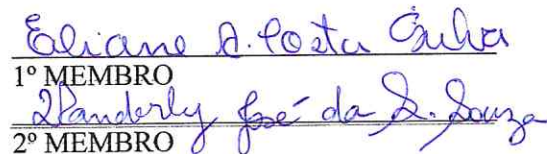 Eliane A. Costa Silva
1º MEMBRO
Wanderly José da S. Souza
2º MEMBRO